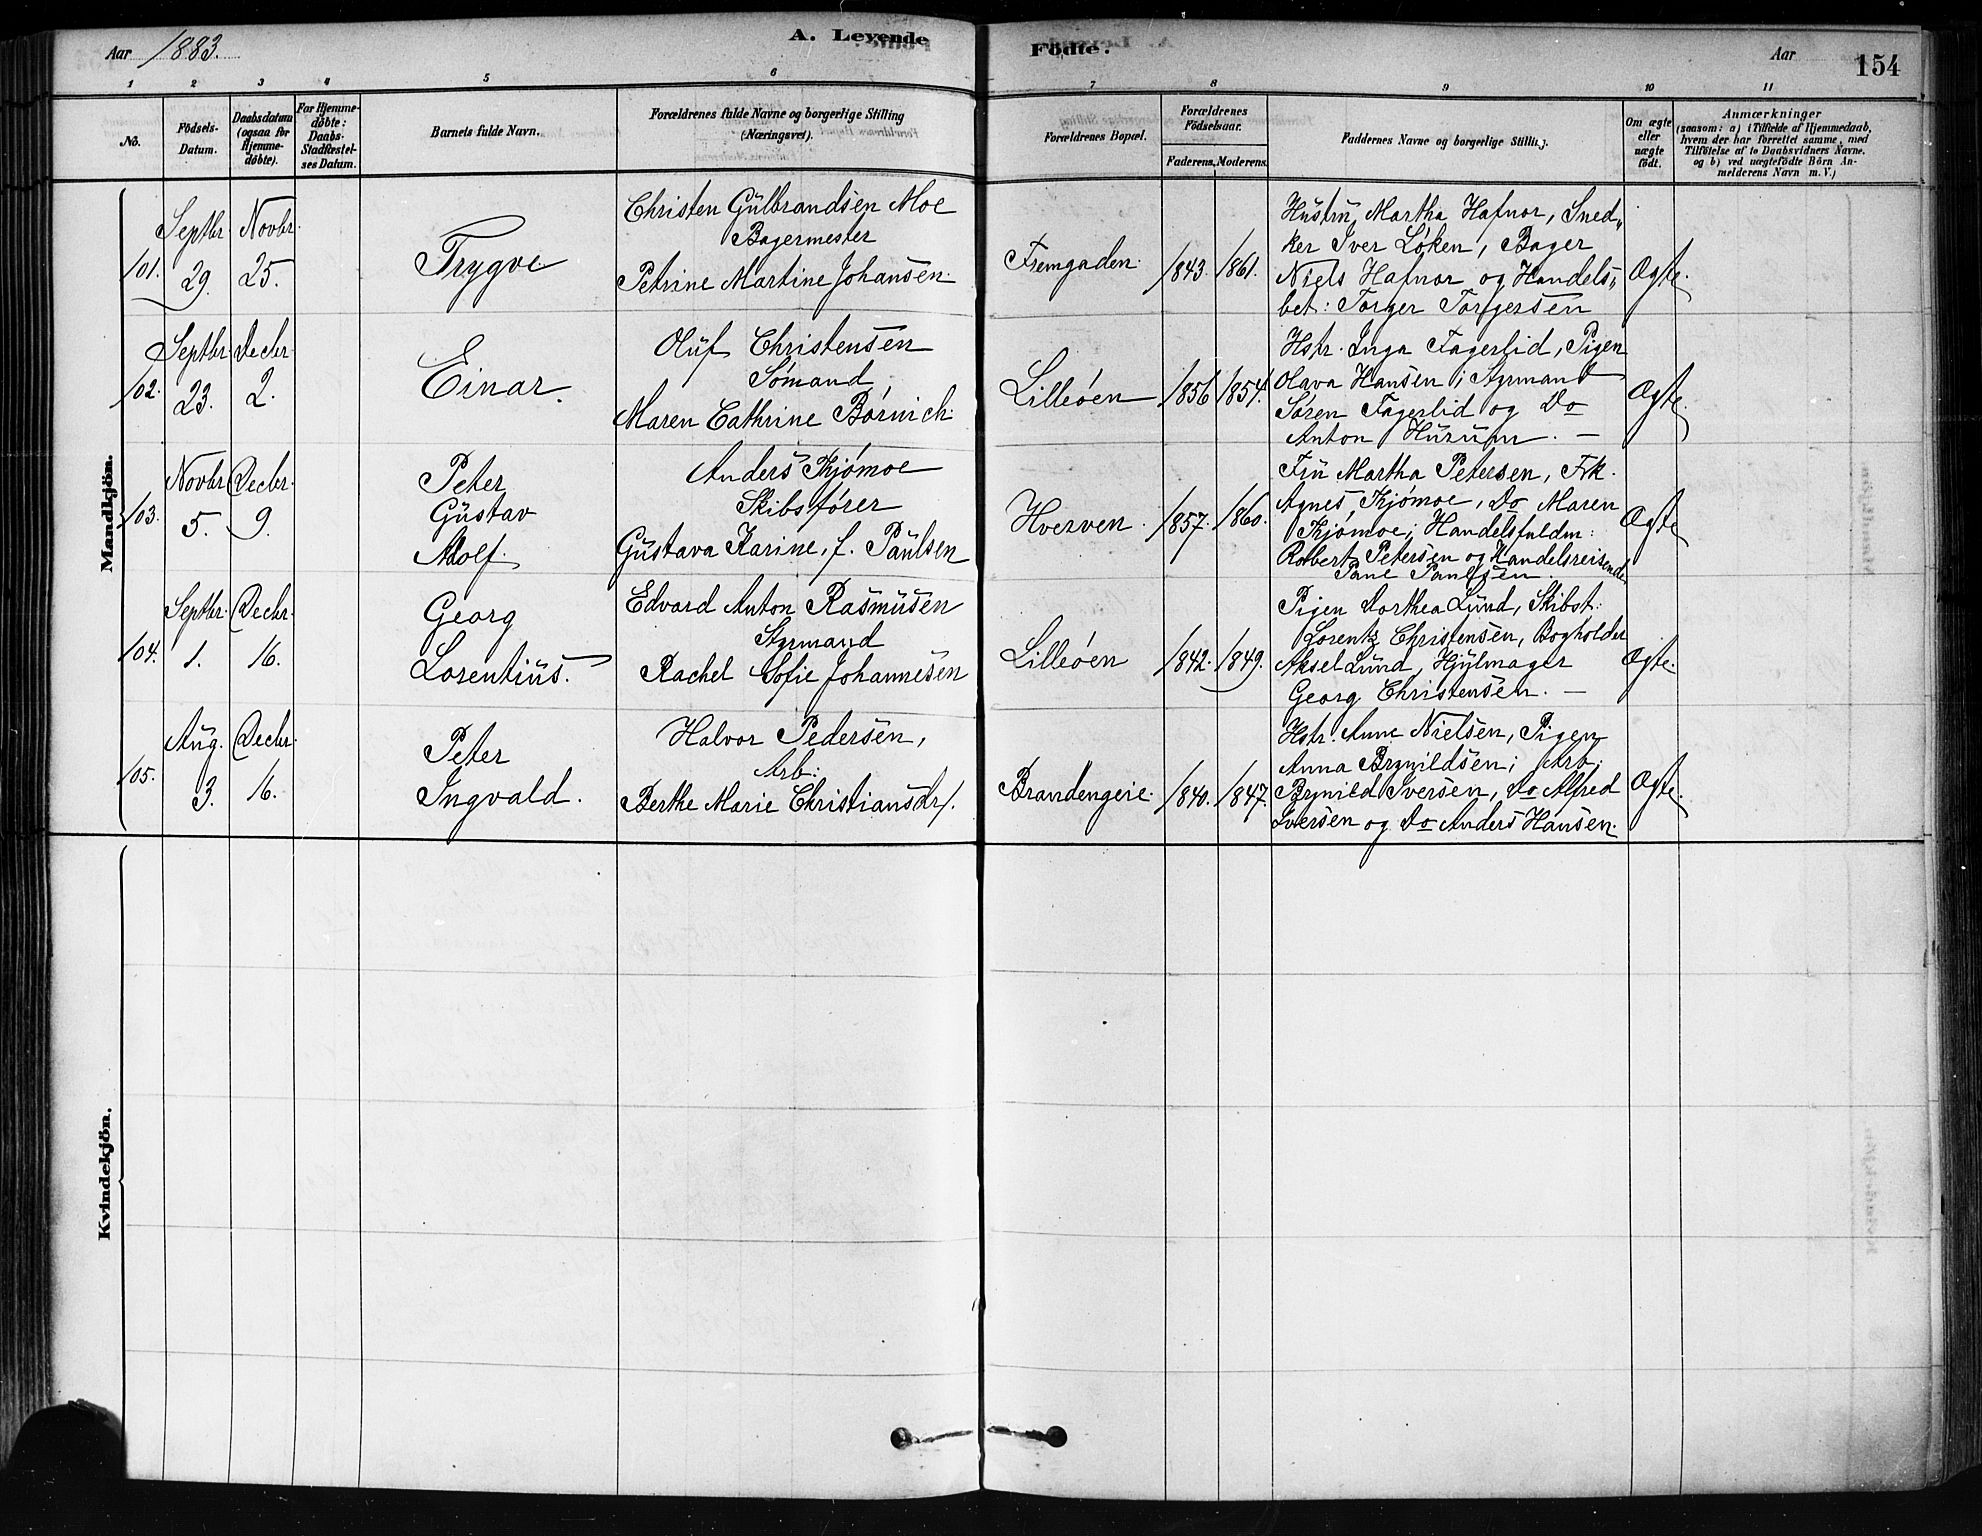 Aar 1883.
A. Levende
Fødte.
Aar
154
1 2 3 4 5 6 7 8 9 10 11
No.
Födsels-Datum.
Daabsdatum (ogsaa for Hjemme-døbte).
For Hjemme-døbte: Daabs-Stadfæstel-ses Datum.
Barnets fulde Navn.
Forældrenes fulde Navne og borgerlige Stilling (Næringsvei).
Forældrenes Bopæl.
Forældrenes Födselsaar.
Faderens. Moderens.
Faddernes Navne og borgerlige Stilling.
Om ægte eller uægte födt.
Anmærkninger
(saasom: a) i Tilfælde af Hjemmedaab,
hvem der har forrettet samme, med
Tilföielse af to Daabsvidners Navne.
og b) ved uægtefödte Börn An-
melderens Navn m. V.)
Mandkjön.
101.
Septbr. 29.
Novbr. 25.
Trygve
Christen Gülbrandsen Moe
Bagermester
Petrine Martine Johansen
Fremgaden
1843. 1861.
Hüstrü Martha Hafnor, Sned„
ker Iver Løken, Bager
Niels Hafnor og Handels„
bet: Torger Torgersen
Ægte.
102.
Septbr. 23.
Decbr. 2.
Einar.
Olüf Christensen
Sömand
Maren Cathrine Börnich
Lilleöen
1856 1854.
Hstr. Inga Fagerlid, Pigen
Olava Hansen; Styrmand
Søren Fagerlid og Do
Anton Hürüm. —
Ægte.
103.
Novbr 5.
Decbr. 9.
Peter
Güstav
Adolf.
Anders Thjömoe
Skibsfører
Güstava Karine, f. Paülsen
Hverven.
1857. 1860.
Frü Martha Petersen, Frk.
Agnes Thjömoe, Do Maren
Thjömoe; Handelsfuldm:
Robert Petersen og Handelsreisende
Ægte
104.
Septbr. 1.
Decbr. 16.
Georg
Lorentiüs.
Edvard Anton Rasmüsen
Styrmand
Rachel Sofie Johannesen
Lilleöen
1842. 1849.
Pigen Dorthea Lünd, Skibst:
Lorentz Christensen, Bogholder
Aksel Lünd, Hjülmager
Georg Christensen. —
Ægte.
105.
Aüg. 3.
Decbr. 16.
Peter
Ingvald.
Halvor Pedersen,
Arb:
Berthe Marie Christiansdr.
Brandengeie.
1840. 1847.
Hstr. Anne Nielsen, Pigen
Anna Brynildsen; Arb.
Brynild Iversen, Do Alfred
Iversen og Do Anders Hansen.
Ægte.
Kvindekjön.